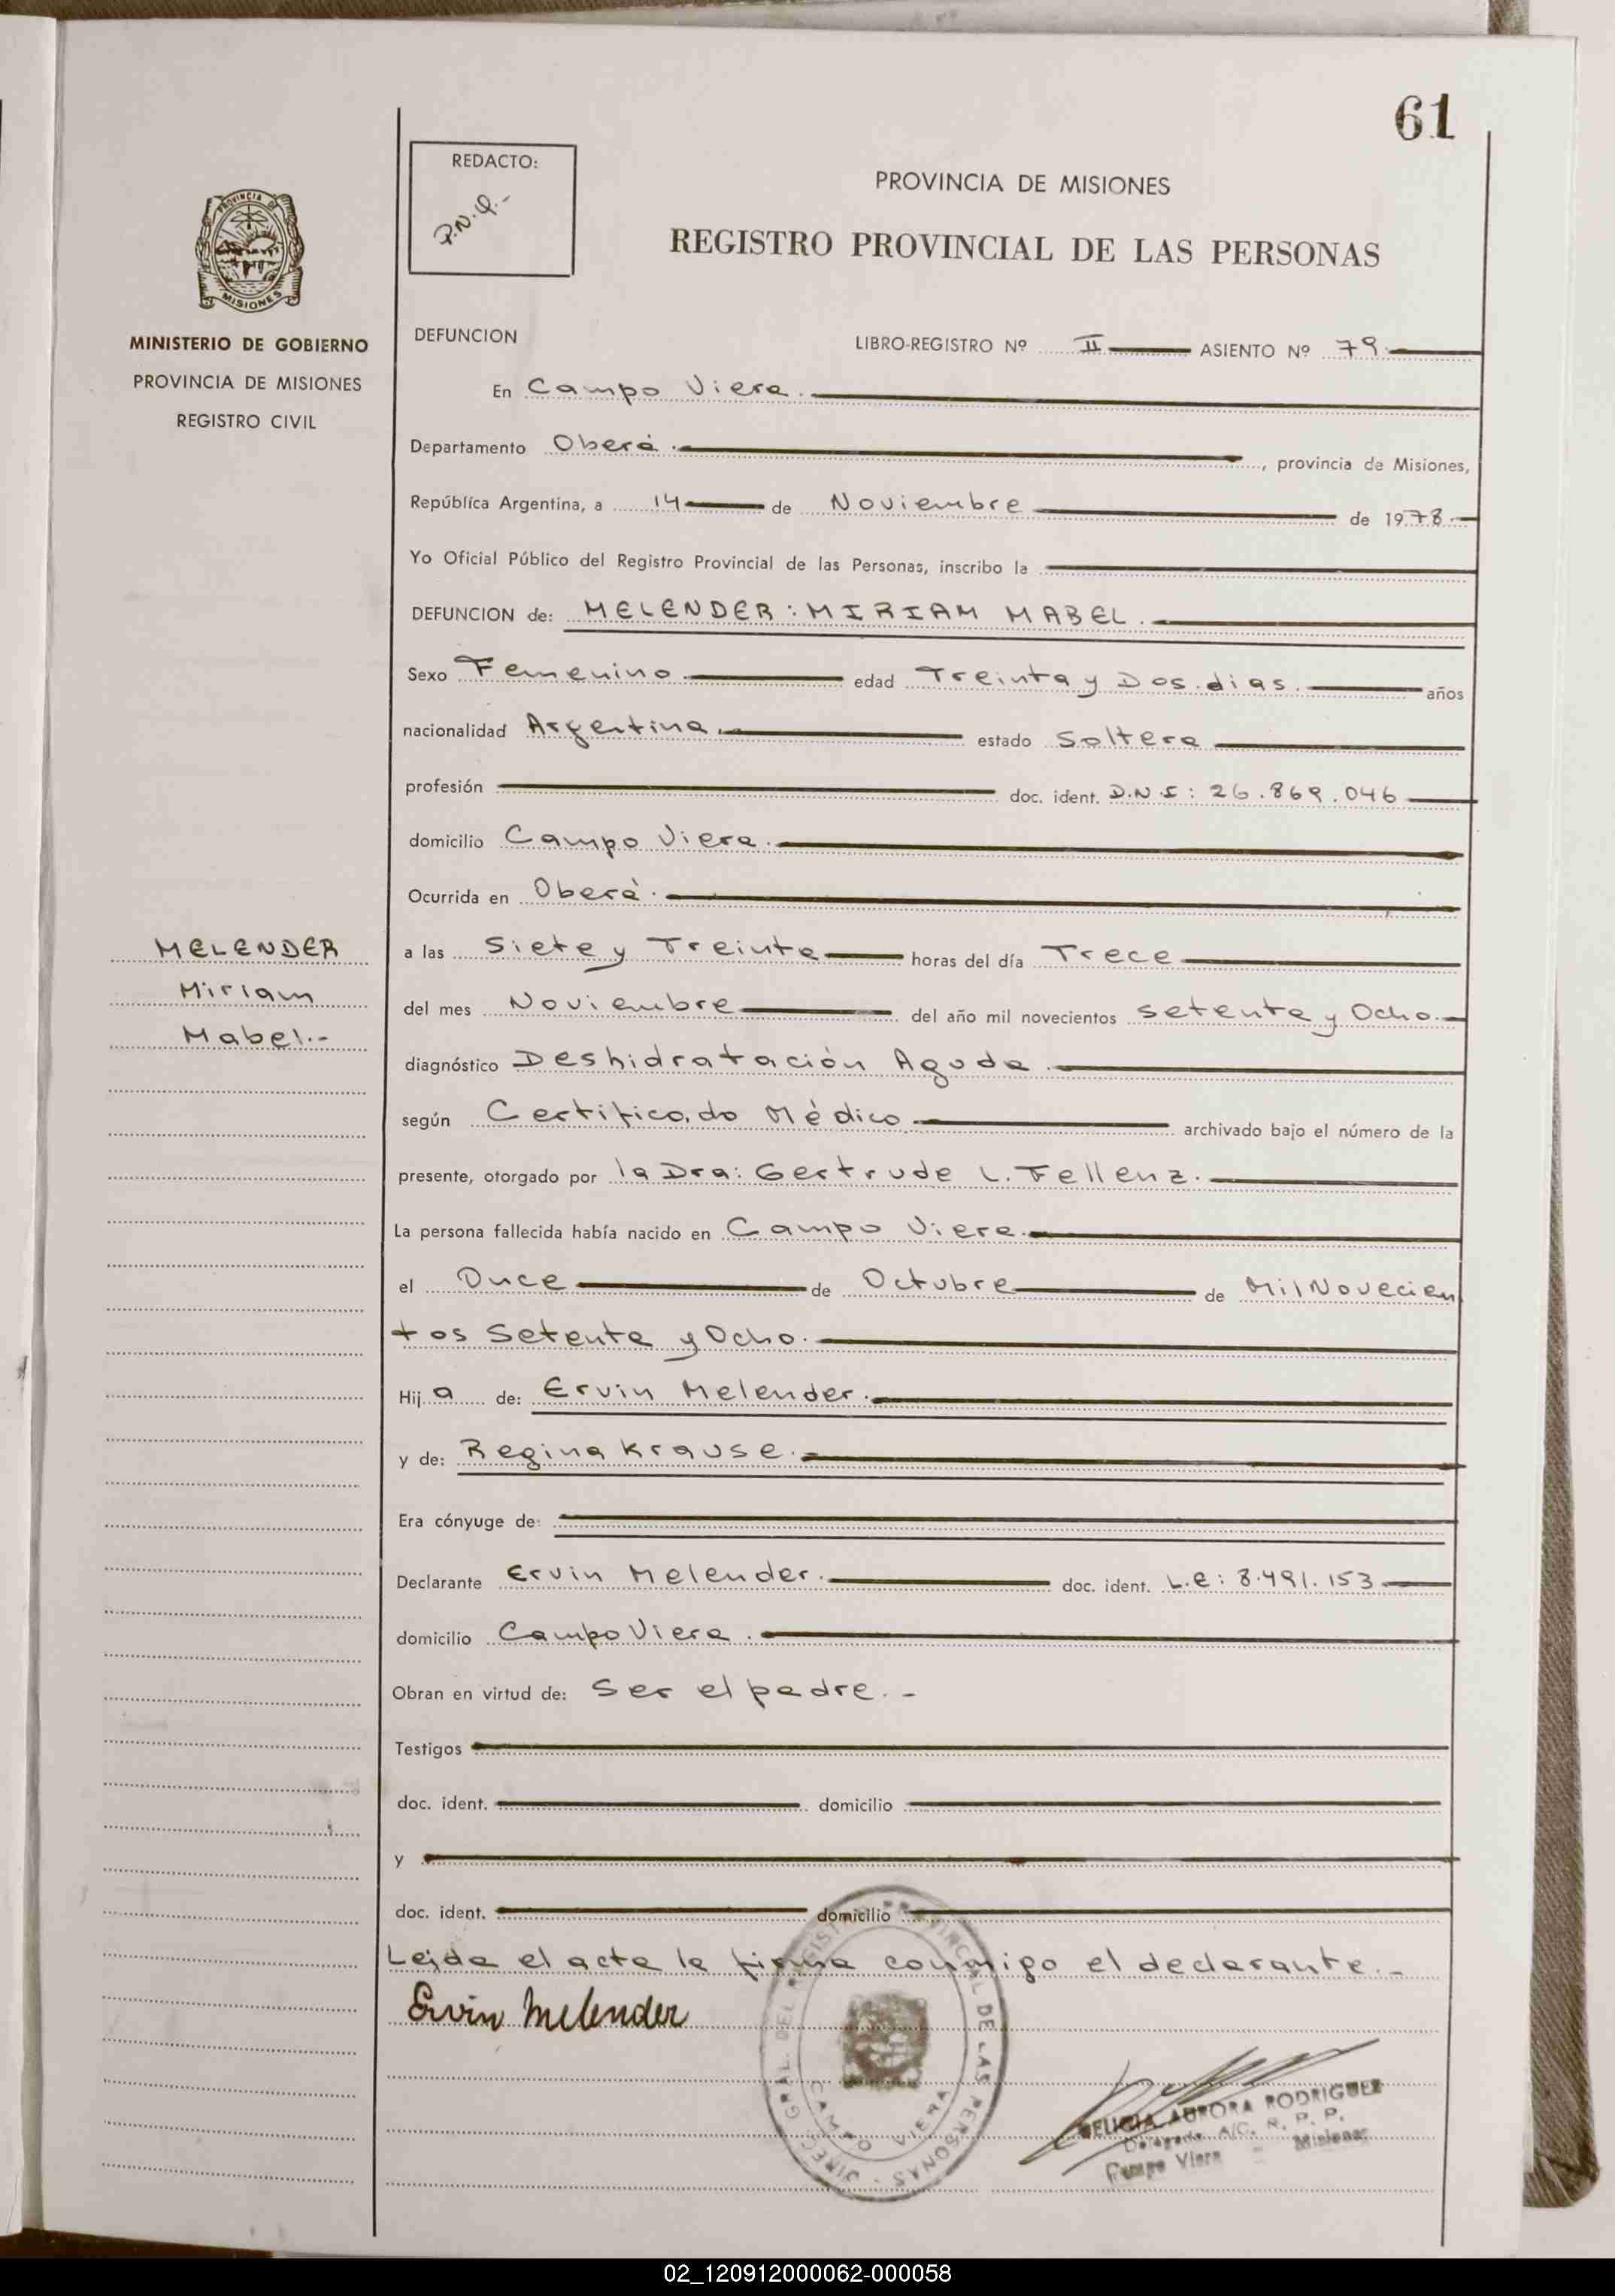 61
REDACTO:
P.N.Q.-
PROVINCIA DE MISIONES
REGISTRO PROVINCIAL DE LAS PERSONAS
PROVINCIA DE
MISIONES
MINISTERIO DE GOBIERNO
PROVINCIA DE MISIONES
REGISTRO CIVIL
DEFUNCION LIBRO-REGISTRO Nº II ASIENTO Nº 79.
En Campo Viera.
Departamento Oberá. , provincia de Misiones,
República Argentina, a 14 de Noviembre de 1978.
Yo Oficial Público del Registro Provincial de las Personas, inscribo la
DEFUNCION de: MELENDER: MIRIAM MABEL.
Sexo Femenino edad Treinta y Dos dias. años
nacionalidad Argentina. estado Soltera
profesión doc. ident. D.N.I: 26.869.046
domicilio Campo Viera.
Ocurrida en Oberá.
a las Siete y Treinta horas del día Trece
del mes Noviembre del año mil novecientos setenta y Ocho.
diagnóstico Deshidratación Aguda.
según Certificado Médico archivado bajo el número de la
presente, otorgado por la Dra: Gertrude L. Fellenz.
La persona fallecida había nacido en Campo Viera.
el Once de Octubre de Mil Novecien
tos Setenta y Ocho.
Hij a de: Ervin Melender.
y de: Regina Krause.
Era cónyuge de:
Declarante Ervin Melender. doc. ident. L.e: 8.491.153
domicilio Campo Viera.
Obran en virtud de: Ser el padre.-
Testigos
doc. ident. domicilio
y
doc. ident. domicilio
Leida el acta la firma conmigo el declarante.-
Ervin Melender
MELENDER
Miriam
Mabel.-
DIREC. GRAL. DEL REGIST PROVINCIAL DE LAS PERSONAS
CAMPO VIERA
FELICIA AURORA RODRIGUEZ
Delegada A/C. R. P. P.
Campo Viera - Misiones
02_120912000062-000058